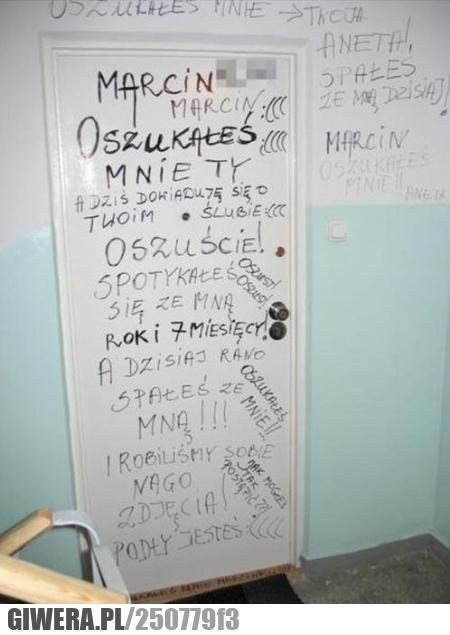 OSZUKAŁEŚ MNIE → TWOJA
ANETA!,
SPAŁEŚ
ZE MNĄ DZISIAJ!
MARCIN
OSZUKAŁEŚ
MNIE!!
ANETA
MARCIN
MARCIN:(((
OSZUKAŁEŚ:((((
MNIE TY
A DZIŚ DOWIADUJĘ SIĘ O
TWOIM ŚLUBIE:(((
OSZUŚCIE!
SPOTYKAŁEŚ
OSZUST!
OSZUST!
SIĘ ZE MNĄ
ROK i 7 MIESIĘCY!
A DZISIAJ RANO
SPAŁEŚ ZE
MNĄ!!!
OSZUKAŁEŚ
MNIE!!,
I ROBILIŚMY SOBIE
NAGO
ZDJĘCIA!
JAK MOGŁEŚ
TAK
POSTĄPIĆ??!!
PODŁY JESTEŚ:((((
OSZUKAŁEŚ MNIE MARCIN
GIWERA.PL/250779f3